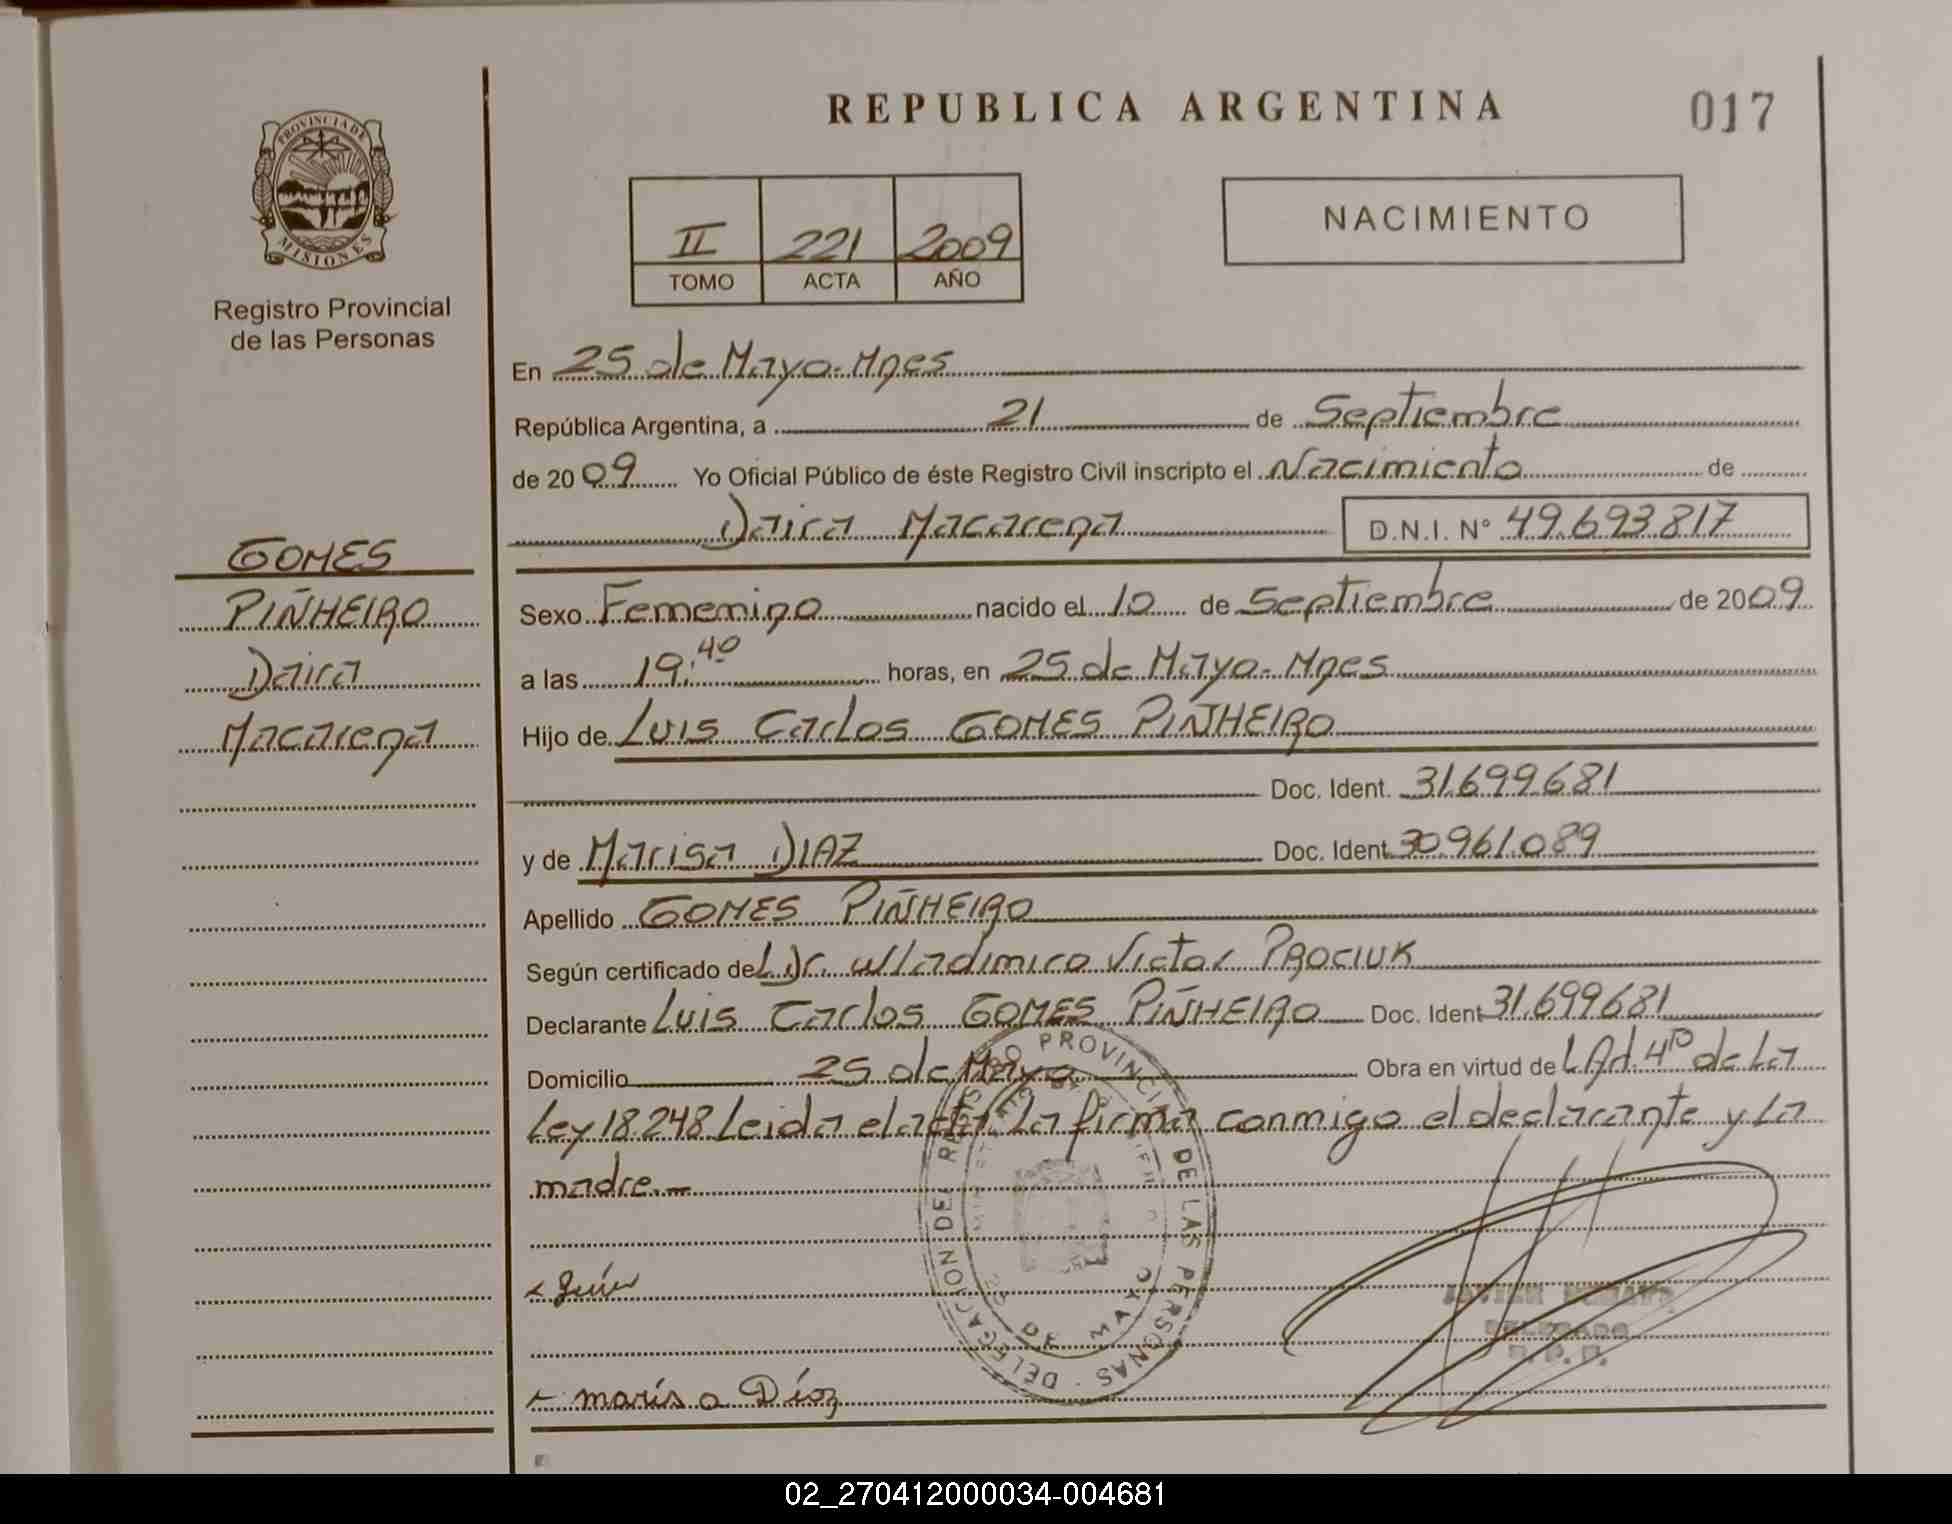 REPUBLICA ARGENTINA
017
PROVINCIA DE
MISIONES
Registro Provincial
de las Personas
II 221 2009
TOMO ACTA AÑO
NACIMIENTO
En 25 de Mayo-Mnes
República Argentina, a 21 de Septiembre
de 2009 Yo Oficial Público de éste Registro Civil inscripto el Nacimiento de
Daira Macarena D.N.I. N° 49.693.817
GOMES
PIÑHEIRO
Daira
Macarena
Sexo Femenino nacido el 10 de Septiembre de 2009
a las 19:40 horas, en 25 de Mayo-Mnes
Hijo de Luis Carlos GOMES PIÑHEIRO
Doc. Ident. 31.699.681
y de Marisa DIAZ Doc. Ident. 30.961.089
Apellido GOMES PIÑHEIRO
Según certificado del Dr. Wladimiro Victor PROCIUK
Declarante Luis Carlos GOMES PIÑHEIRO Doc. Ident 31.699681
Domicilio 25 de Mayo Obra en virtud de L Ad. 4to de La
Ley 18.248. Leida el acta, La firma conmigo el declarante y La
madre.-
REGISTRO PROVINCIAL DE LAS PERSONAS · DELEGACION DEL
25 DE MAYO
marisa Díaz
DELEGADO
R. P. P.
02_270412000034-004681